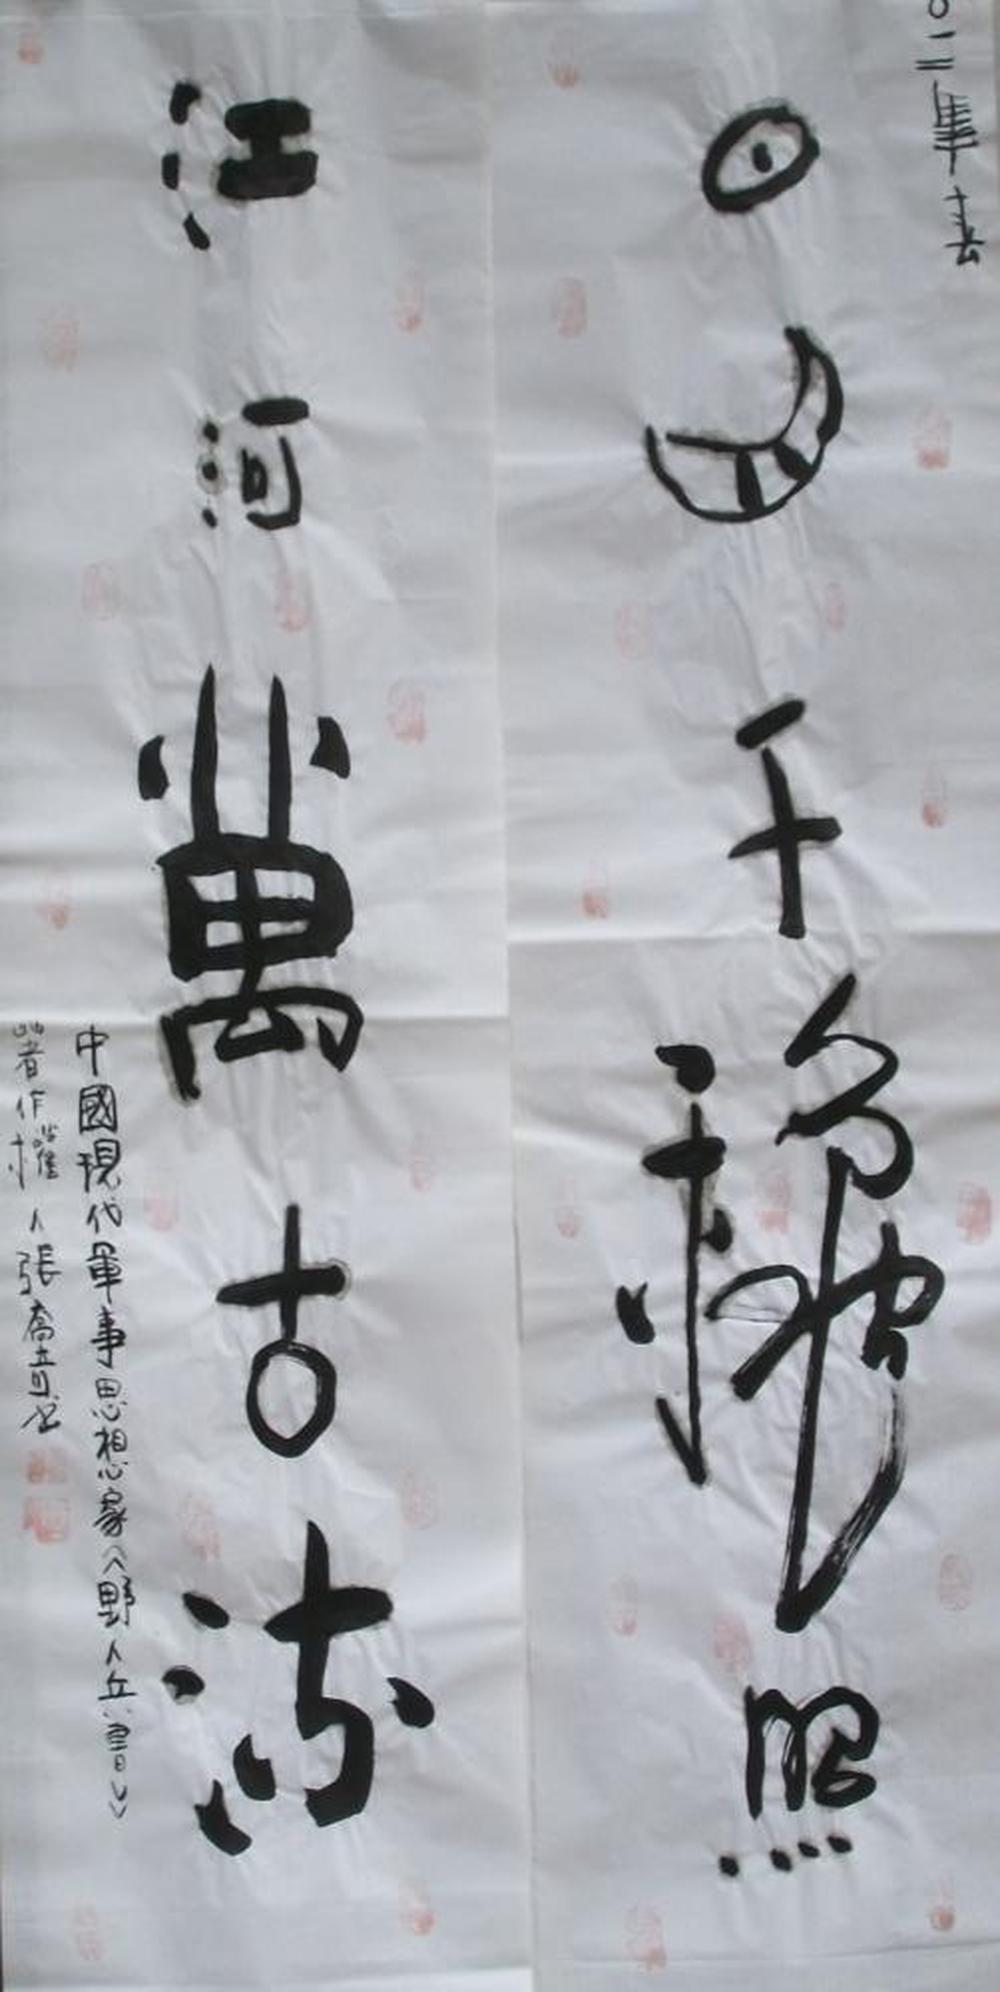 〇一二年春
日月千秋照
江河萬古流
中國現代軍事思想家《野人兵書》
著作權人張喬育書